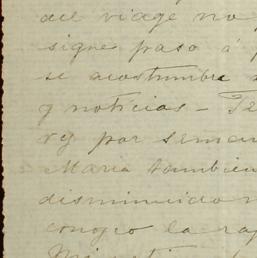 del viage no
sigue paso á
se acostumbre
y noticias - Te
por seman
Maria tambien
disminuido
conozco la